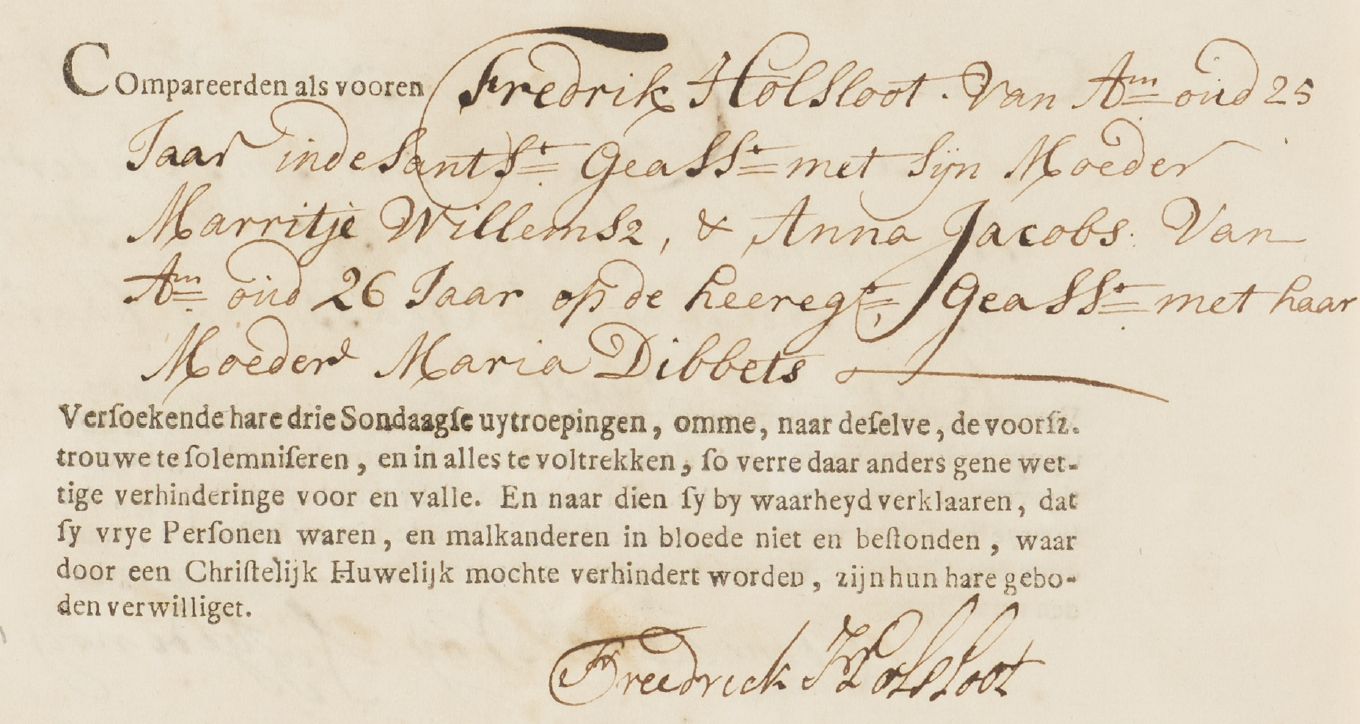 COmpareerden als vooren Fredrik Holsloot. Van Am oud 25
Jaar in de Santst Geasst met sijn Moeder
Marritje Willemsz, & Anna Jacobs. Van
Am oud 26 Jaar op de heeregt, Geasst met haar
Moeder Maria Dibbets
Verſoekende hare drie Sondaagſe uytroepingen, omme, naar deſelve, de voorſz.
trouwe te ſolemniſeren, en in alles te voltrekken, ſo verre daar anders gene wet-
tige verhinderinge voor en valle. En naar dien ſy by waarheyd verklaaren, dat
ſy vrye Perſonen waren, en malkanderen in bloede niet en beſtonden, waar
door een Chriſtelijk Huwelijk mochte verhindert worden, zijn hun hare gebo-
den verwilliget.
Freedrick Holsloot